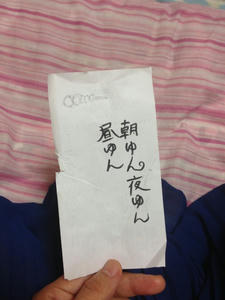 朝ゆん夜ゆん
昼ゆん